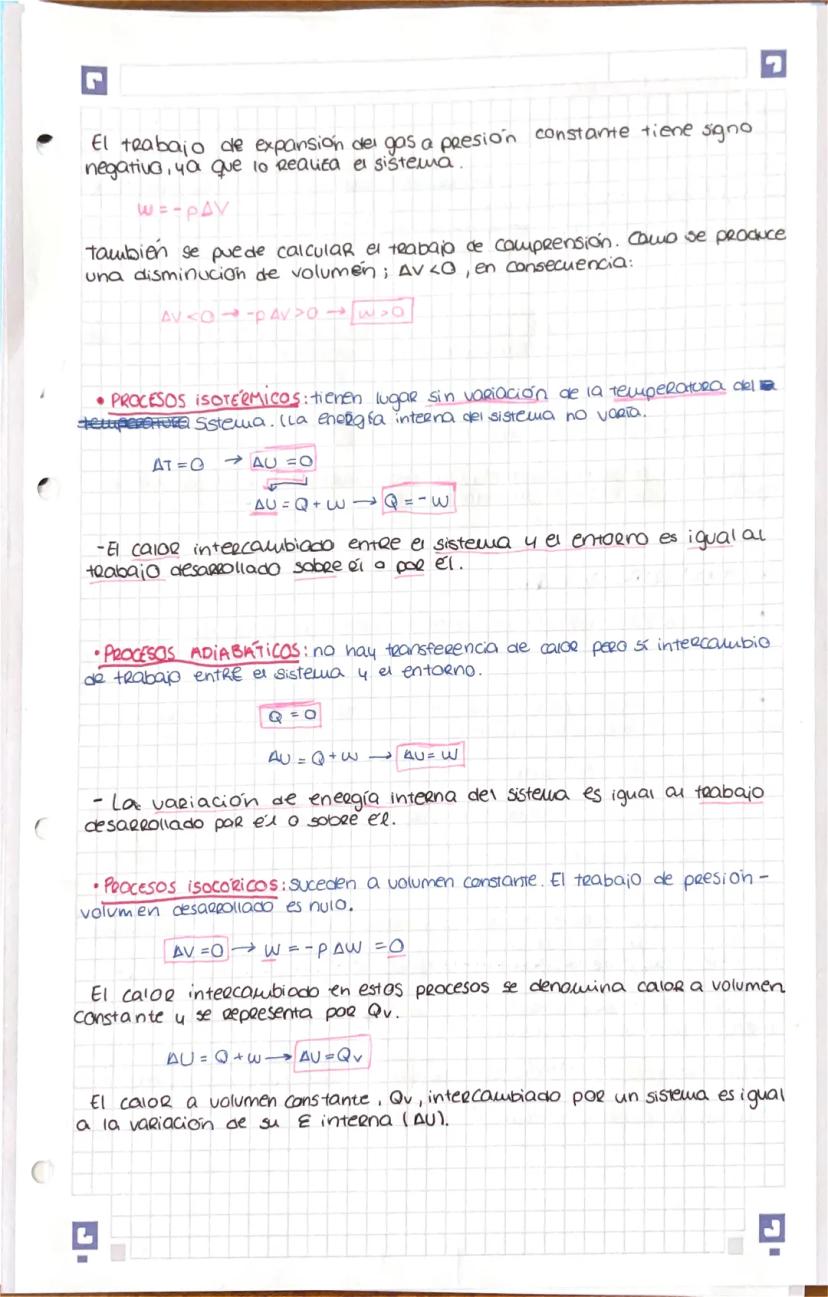 El trabajo de expansión del gas a presión constante tiene signo
negativo, ya que lo realiza el sistema.
W = - p ΔV
también se puede calcular el trabajo de comprensión. Como se produce
una disminución de volumen; ΔV < 0, en consecuencia:
ΔV < 0 → - p ΔV > 0 → W > 0
• PROCESOS ISOTÉRMICOS: tienen lugar sin variación de la temperatura del
temperatura sistema. (La energía interna del sistema no varía.
ΔT = 0 → ΔU = 0
ΔU = Q + W → Q = - W
- El calor intercambiado entre el sistema y el entorno es igual al
trabajo desarrollado sobre él o por él.
• PROCESOS ADIABÁTICOS: no hay transferencia de calor pero sí intercambio
de trabajo entre el sistema y el entorno.
Q = 0
ΔU = Q + W → ΔU = W
- La variación de energía interna del sistema es igual al trabajo
desarrollado por él o sobre él.
• PROCESOS ISOCÓRICOS: suceden a volumen constante. El trabajo de presión -
volumen desarrollado es nulo.
ΔV = 0 → W = - P ΔW = 0
El calor intercambiado en estos procesos se denomina calor a volumen
constante y se representa por Qv.
ΔU = Q + W → ΔU = Qv
El calor a volumen constante, Qv, intercambiado por un sistema es igual
a la variación de su E interna (ΔU).